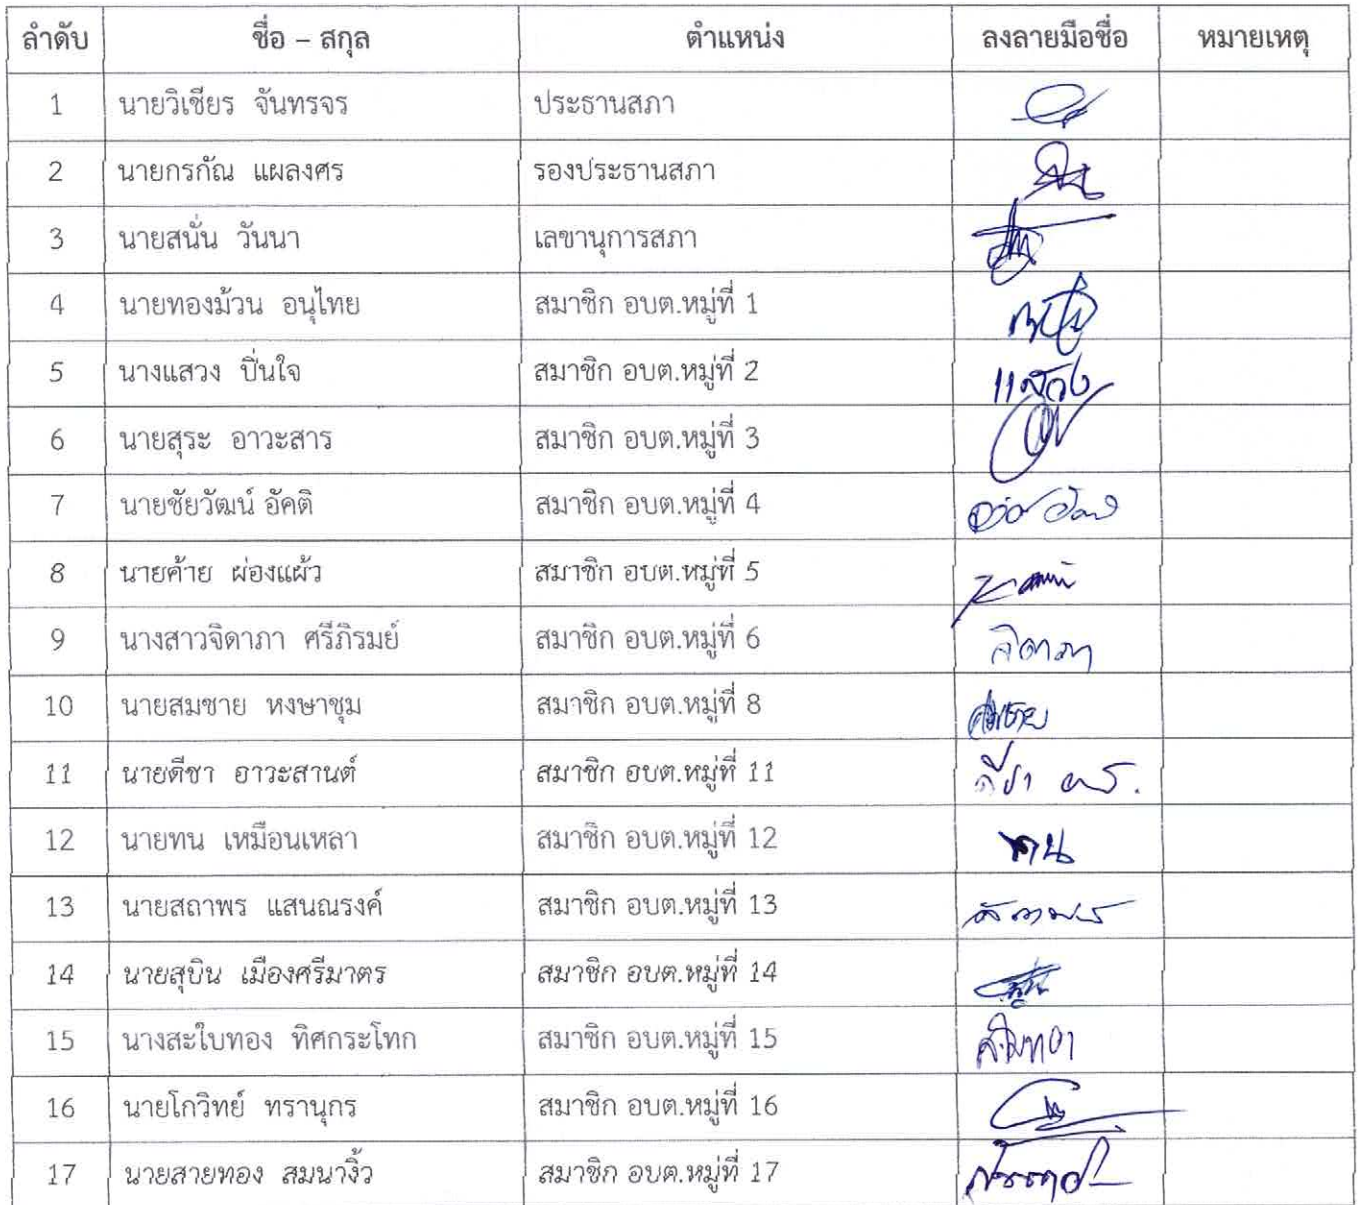 ลำดับ ชื่อ – สกุล ตำแหน่ง ลงลายมือชื่อ หมายเหตุ
1 นายวิเชียร จันทรจร ประธานสภา
2 นายกรกัณ แผลงศร รองประธานสภา
3 นายสนั่น วันนา เลขานุการสภา
4 นายทองม้วน อนุไทย สมาชิก อบต.หมู่ที่ 1
5 นางแสวง ปิ่นใจ สมาชิก อบต.หมู่ที่ 2 แสวง
6 นายสุระ อาวะสาร สมาชิก อบต.หมู่ที่ 3
7 นายชัยวัฒน์ อัคติ สมาชิก อบต.หมู่ที่ 4
8 นายค้าย ผ่องแผ้ว สมาชิก อบต.หมู่ที่ 5
9 นางสาวจิดาภา ศรีภิรมย์ สมาชิก อบต.หมู่ที่ 6 จิดาภา
10 นายสมชาย หงษาชุม สมาชิก อบต.หมู่ที่ 8 สมชาย
11 นายดีชา อาวะสานต์ สมาชิก อบต.หมู่ที่ 11 ดีชา
12 นายทน เหมือนเหลา สมาชิก อบต.หมู่ที่ 12 ทน
13 นายสถาพร แสนณรงค์ สมาชิก อบต.หมู่ที่ 13 สถาพร
14 นายสุบิน เมืองศรีมาตร สมาชิก อบต.หมู่ที่ 14
15 นางสะใบทอง ทิศกระโทก สมาชิก อบต.หมู่ที่ 15
16 นายโกวิทย์ ทรานุกร สมาชิก อบต.หมู่ที่ 16
17 นายสายทอง สมนางิ้ว สมาชิก อบต.หมู่ที่ 17